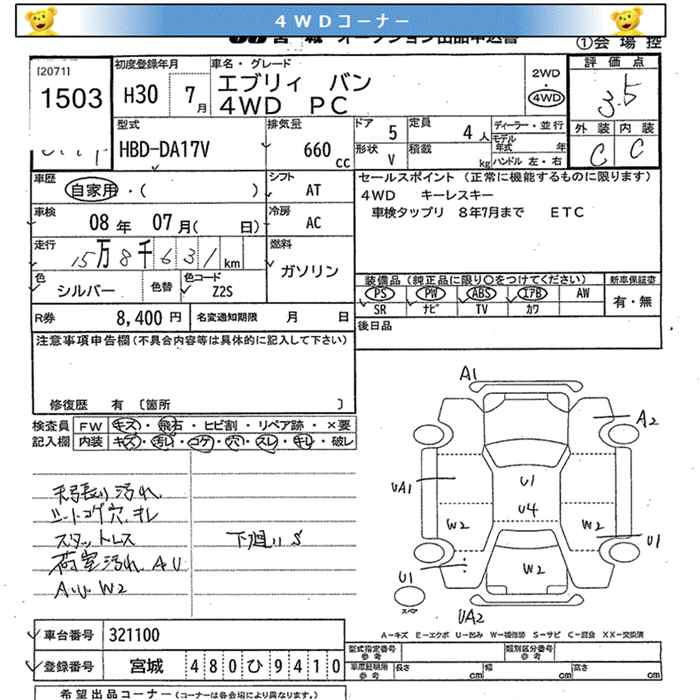 4WDコーナー
①会場控
[2071]
1503
初度登録年月
H30 7月
車名・グレード
エブリィ バン
4WD PC
2WD
・
4WD
評価点
3.5
外装 内装
C C
型式
HBD-DA17V
排気量
660 cc
ドア 5
定員 4人
形状 V
積載 kg
ディーラー・並行
モデル年式 年
ハンドル 左・右
車歴
自家用・( )
シフト
AT
セールスポイント (正常に機能するものに限ります)
4WD キーレスキー
車検タップリ 8年7月まで ETC
車検
08年 07月( 日)
冷房
AC
走行
15万8千631km
燃料
ガソリン
色
シルバー
色替
色コード
Z2S
装備品(純正品に限り○をつけてください) 新車保証書
PS PW ABS エアB AW
SR ナビ TV カワ
有・無
R券 8,400円
名変通知期限 月 日
後日品
注意事項申告欄(不具合内容等は具体的に記入して下さい)
修復歴 有 〔箇所 〕
検査員記入欄
FW キズ・飛石・ヒビ割・リペア跡・×要
内装 キズ・汚れ・コゲ・穴・スレ・キレ・破レ
天張り汚れ
シートコゲ穴.キレ
スタットレス
下廻りS
荷室汚れ AU
A.U.W2
A1
A2
UA1
U1
U4
W2
W2
U1
U1
W2
UA2
スペア
A-キズ E-エクボ U-凹み W-補修跡 S-サビ C-腐食 XX-交換済
車台番号 321100
登録番号 宮城 480ひ9410
型式指定番号
参考
類別区分番号
参考
車庫証明用
参考
長さ
幅
高さ
cm
希望出品コーナー(コーナーは各会場により異なります。)